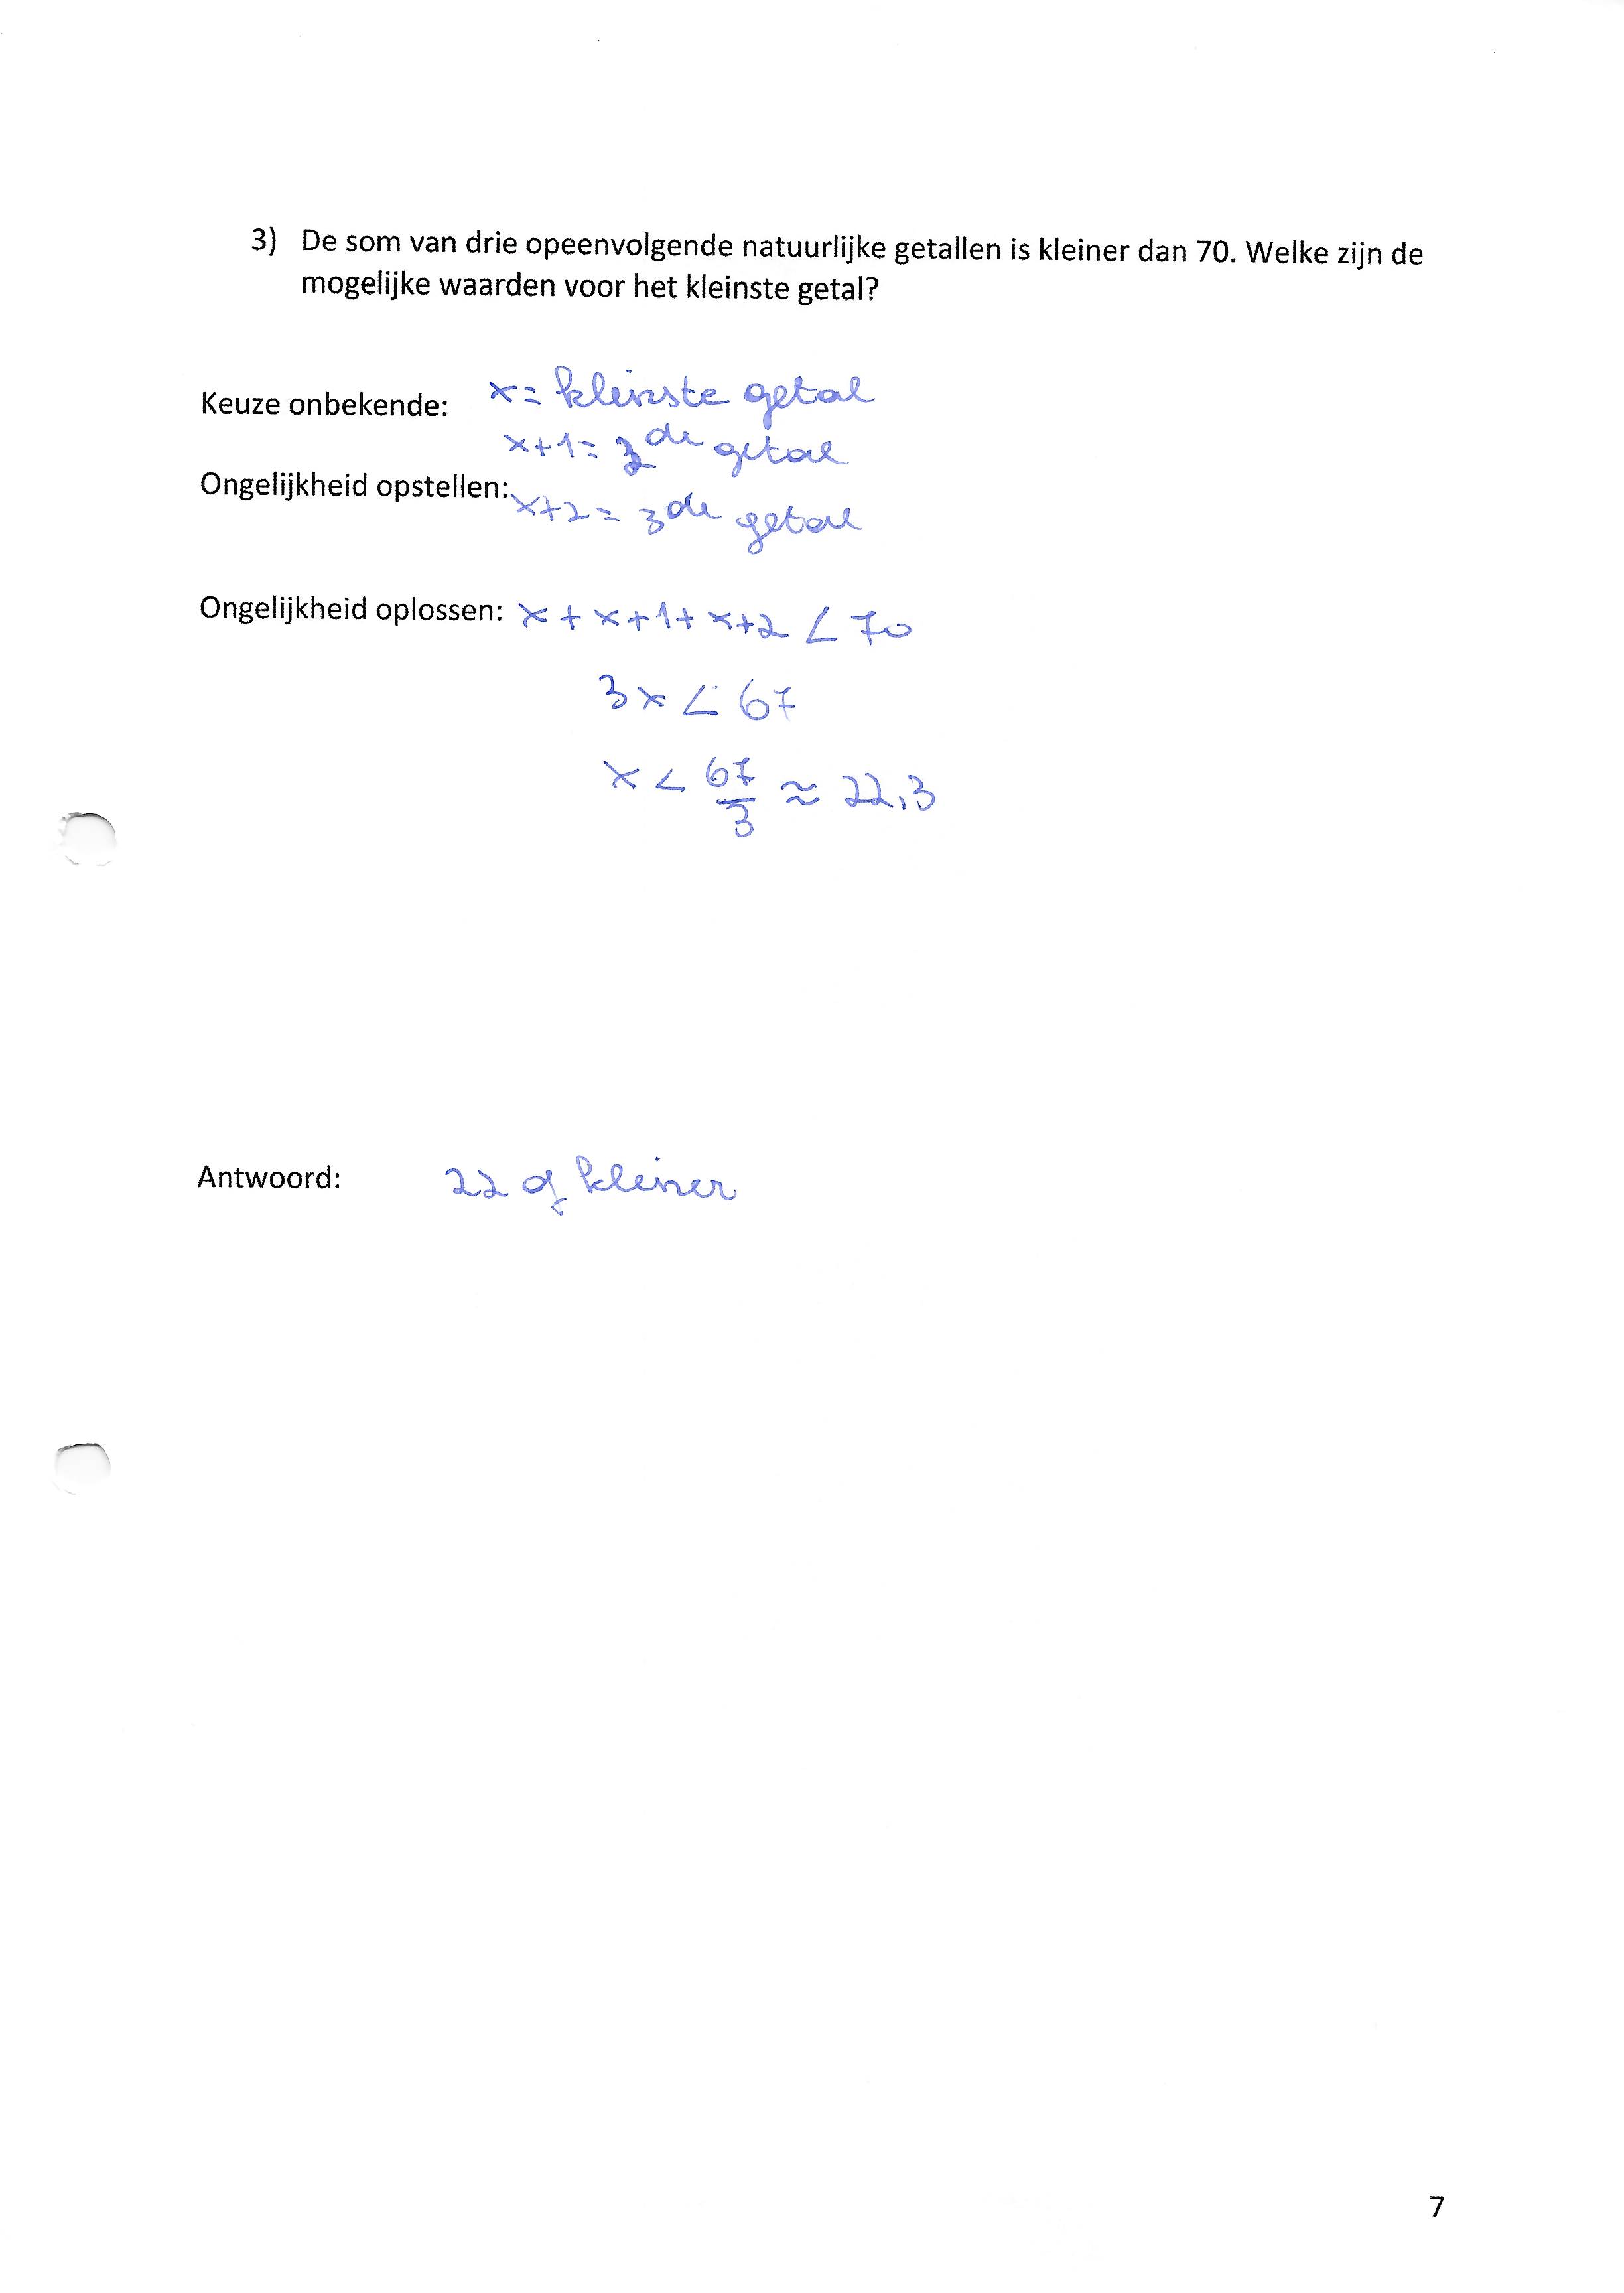 3) De som van drie opeenvolgende natuurlijke getallen is kleiner dan 70. Welke zijn de
mogelijke waarden voor het kleinste getal?
Keuze onbekende: x = kleinste getal
x+1 = 2de getal
Ongelijkheid opstellen: x+2 = 3de getal
Ongelijkheid oplossen: x + x+1 + x+2 < 70
3x < 67
x < 67/3 ≈ 22,3
Antwoord: 22 of kleiner
7